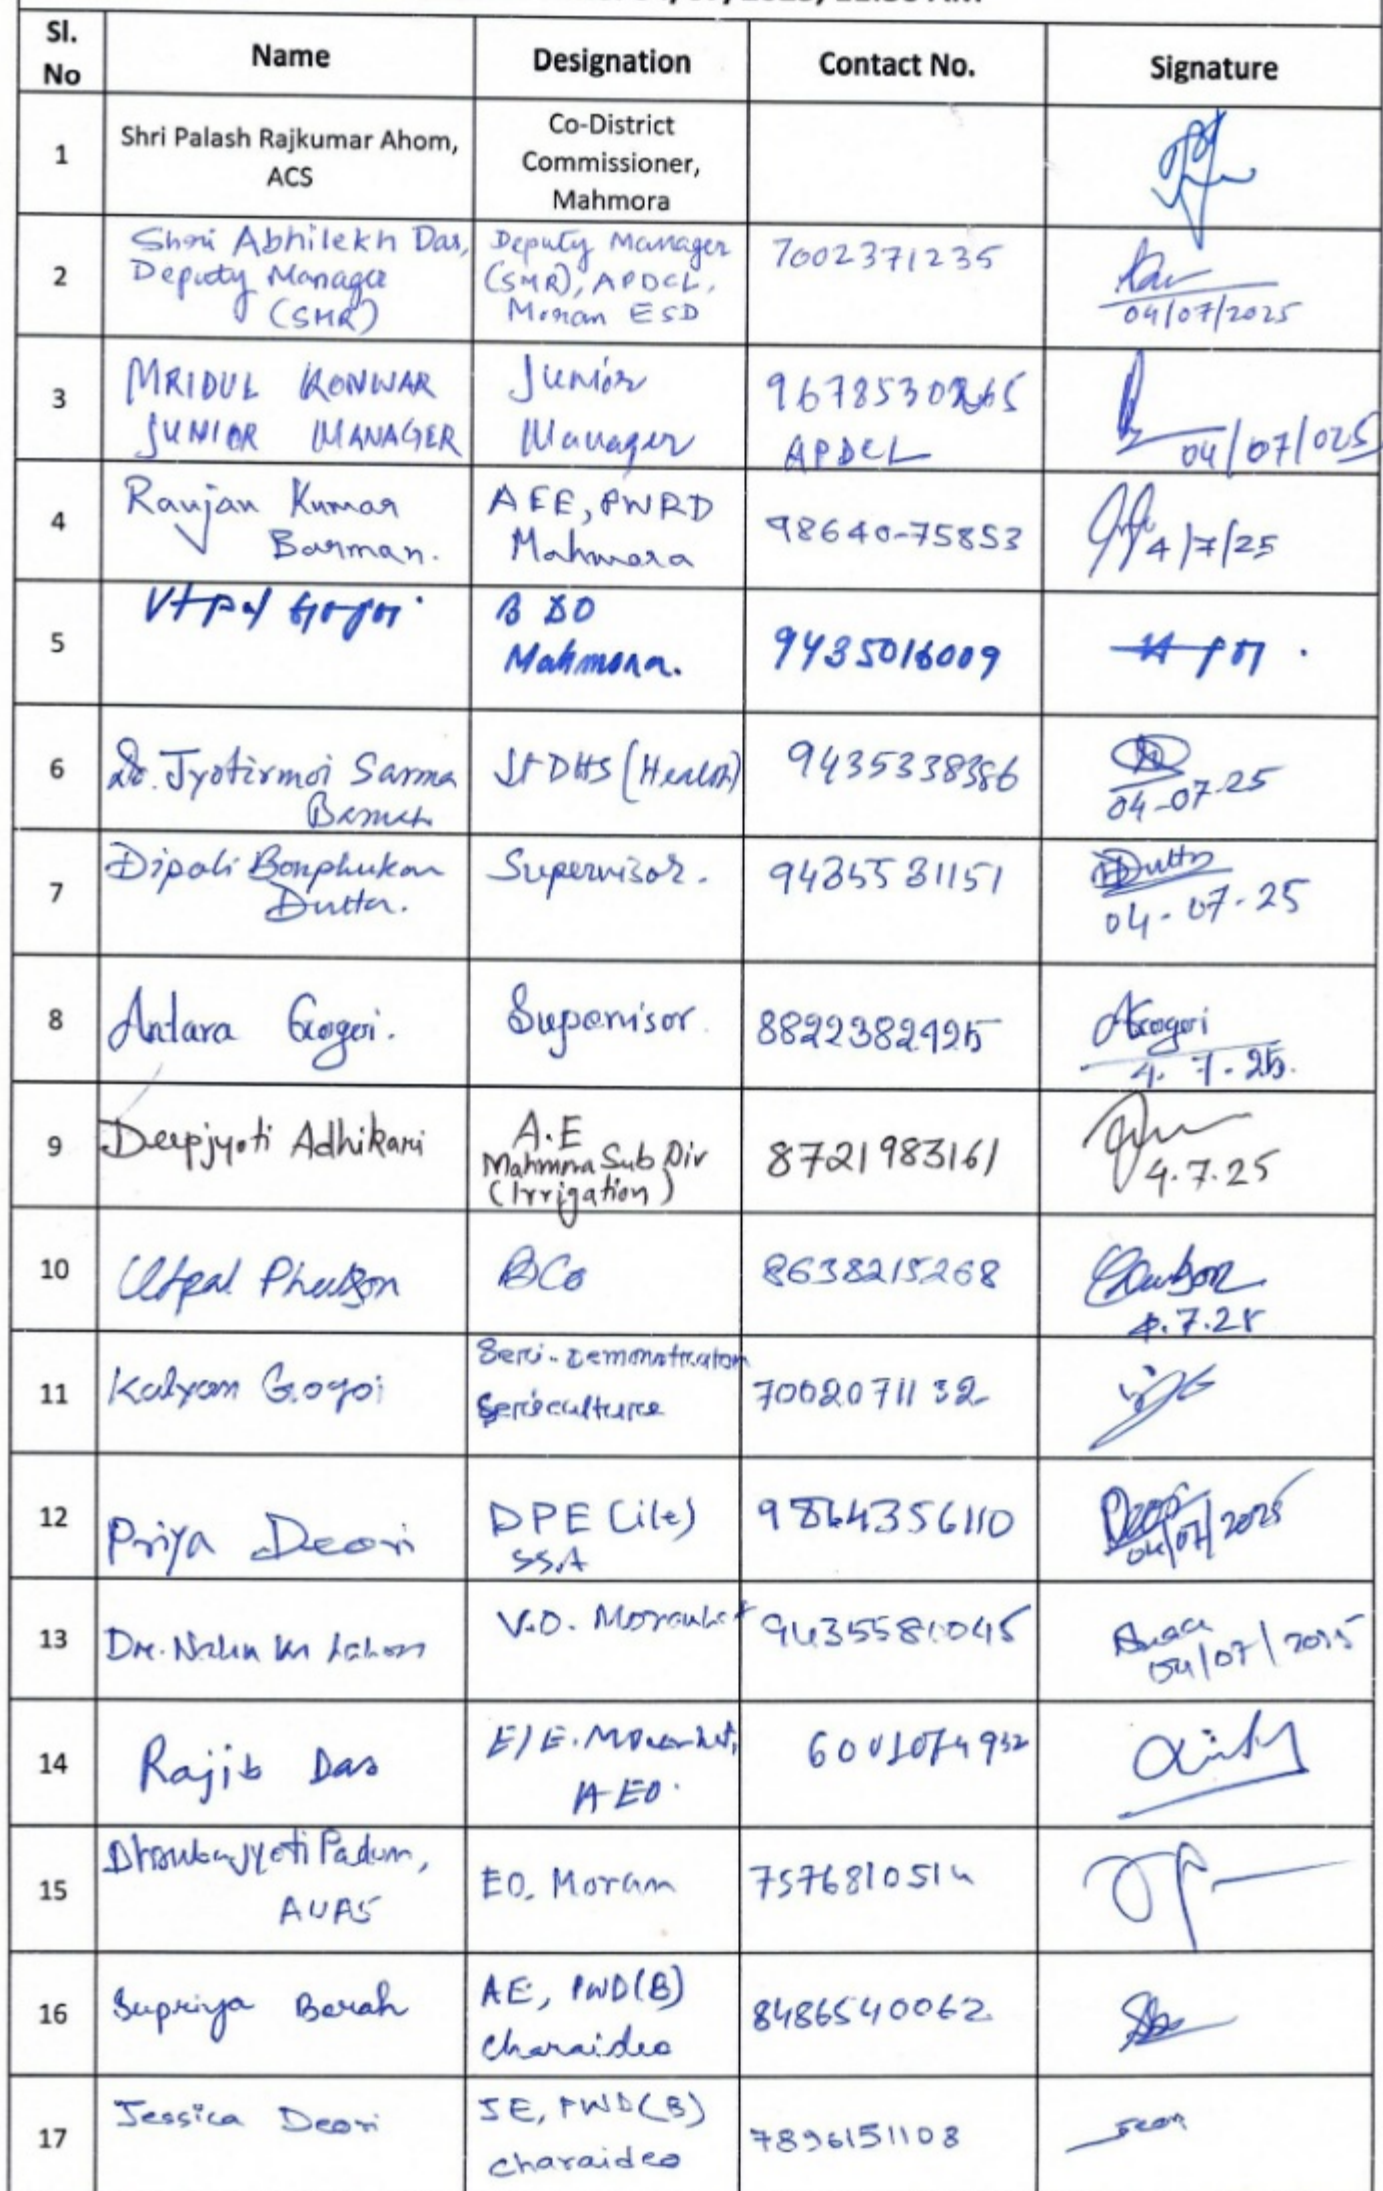 Sl. No Name Designation Contact No. Signature
1 Shri Palash Rajkumar Ahom, ACS Co-District Commissioner, Mahmora
2 Shri Abhilekh Das, Deputy Manager (SMR) Deputy Manager (SMR), APDCL, Moran ESD 7002371235 04/07/2025
3 MRIDUL KONWAR JUNIOR MANAGER Junior Manager APDCL 04/07/025
4 Ranjan Kumar Barman. AEE, PWRD Mahmora 98640-75853 4/7/25
5 Utpal Gogoi BDO Mahmora. 9435016009
6 Dr. Jyotirmoi Sarma Jt DHS (Health) 9435338386 04-07-25
7 Dipali Borphukan Dutta. Supervisor. 9435531151 Dutta 04-07-25
8 Antara Gogoi. Supervisor. 8822382925 AGogoi 4.7.25.
9 Deepjyoti Adhikari A.E Mahmora Sub Div (Irrigation) 8721983161 4.7.25
10 Utpal Phukon BCo 8638215268 4.7.25
11 Kalyan Gogoi Seri-Demonstrator Sericulture 7002071132
12 Priya Deori DPE (ile) SSA 9864356110 04/07/2025
13 V.O. Moranhat 9435581045 04/07/2025
14 Rajib Das AEO.
15 Dhrubajyoti Padum, EO, Moran 7576810514
16 Supriya Borah AE, PWD(B) Charaideo 8486540062
17 Jessica Deori JE, PWD(B) Charaideo 7896151108